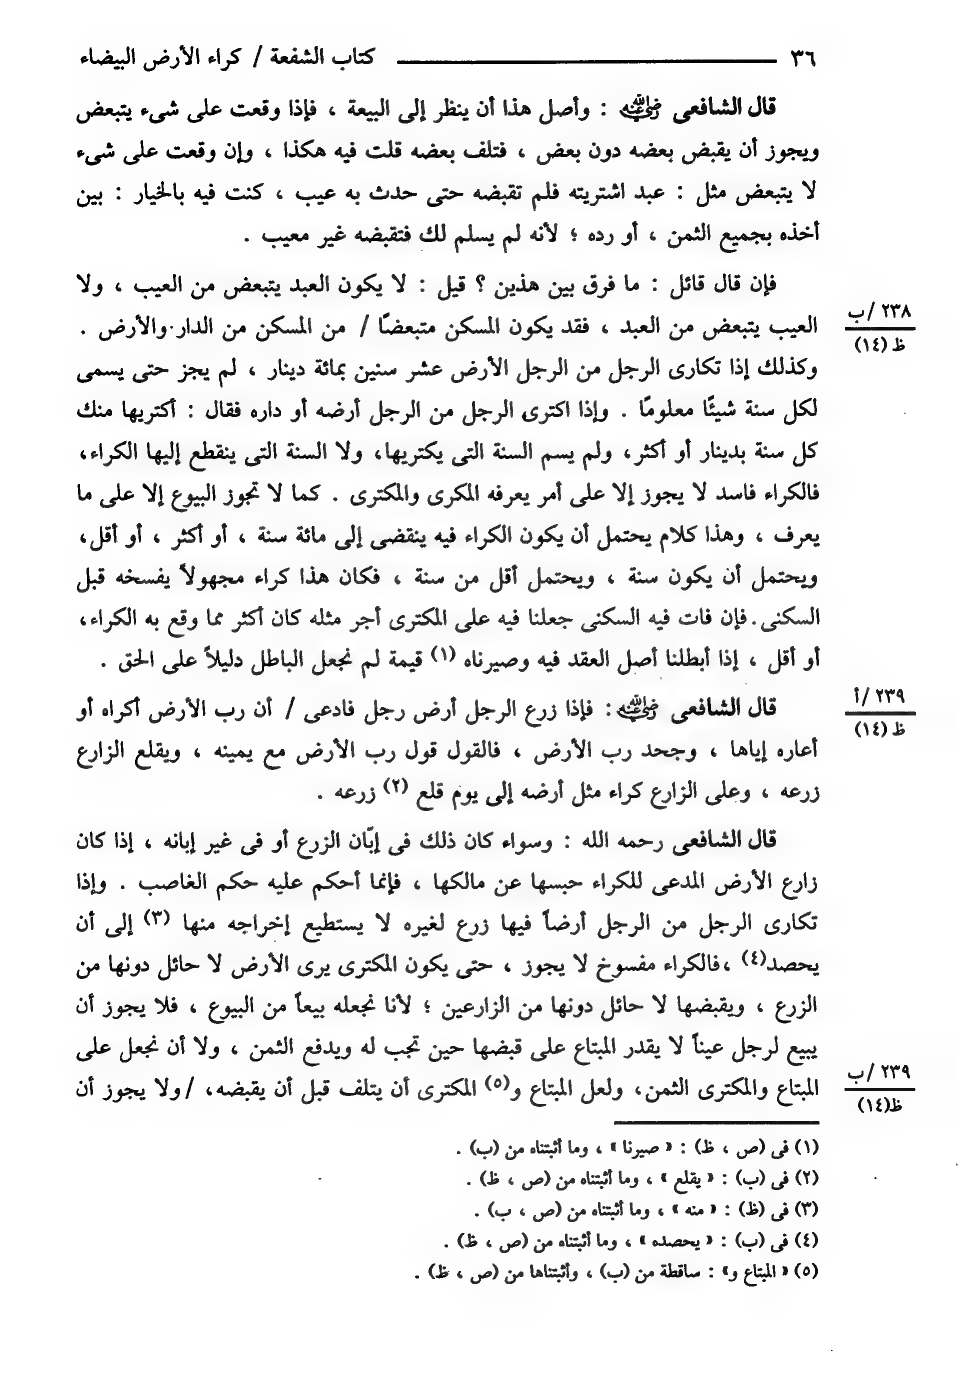 ٣٦ كتاب الشفعة / كراء الأرض البيضاء
قال الشافعى رضي الله عنه : وأصل هذا أن ينظر إلى البيعة ، فإذا وقعت على شىء يتبعض
ويجوز أن يقبض بعضه دون بعض ، فتلف بعضه قلت فيه هكذا ، وإن وقعت على شىء
لا يتبعض مثل : عبد اشتريته فلم تقبضه حتى حدث به عيب ، كنت فيه بالخيار : بين
أخذه بجميع الثمن ، أو رده ؛ لأنه لم يسلم لك فتقبضه غير معيب .
فإن قال قائل : ما فرق بين هذين ؟ قيل : لا يكون العبد يتبعض من العيب ، ولا
العيب يتبعض من العبد ، فقد يكون المسكن متبعضًا / من المسكن من الدار والأرض .
٢٣٨ /ب
ظ (١٤)
وكذلك إذا تكارى الرجل من الرجل الأرض عشر سنين بمائة دينار ، لم يجز حتى يسمى
لكل سنة شيئًا معلومًا . وإذا اكترى الرجل من الرجل أرضه أو داره فقال : أكتريها منك
كل سنة بدينار أو أكثر، ولم يسم السنة التى يكتريها، ولا السنة التى ينقطع إليها الكراء،
فالكراء فاسد لا يجوز إلا على أمر يعرفه المكرى والمكترى . كما لا تجوز البيوع إلا على ما
يعرف ، وهذا كلام يحتمل أن يكون الكراء فيه ينقضى إلى مائة سنة ، أو أكثر ، أو أقل،
ويحتمل أن يكون سنة ، ويحتمل أقل من سنة ، فكان هذا كراء مجهولاً يفسخه قبل
السكنى. فإن فات فيه السكنى جعلنا فيه على المكترى أجر مثله كان أكثر مما وقع به الكراء،
أو أقل ، إذا أبطلنا أصل العقد فيه وصيرناه (١) قيمة لم نجعل الباطل دليلاً على الحق .
قال الشافعى رضي الله عنه : فإذا زرع الرجل أرض رجل فادعى / أن رب الأرض أكراه أو
٢٣٩ /أ
ظ (١٤)
أعاره إياها ، وجحد رب الأرض ، فالقول قول رب الأرض مع يمينه ، ويقلع الزارع
زرعه ، وعلى الزارع كراء مثل أرضه إلى يوم قلع (٢) زرعه .
قال الشافعى رحمه الله : وسواء كان ذلك فى إبّان الزرع أو فى غير إبانه ، إذا كان
زارع الأرض المدعى للكراء حبسها عن مالكها ، فإنما أحكم عليه حكم الغاصب . وإذا
تكارى الرجل من الرجل أرضاً فيها زرع لغيره لا يستطيع إخراجه منها (٣) إلى أن
يحصد(٤) ،فالكراء مفسوخ لا يجوز ، حتى يكون المكترى يرى الأرض لا حائل دونها من
الزرع ، ويقبضها لا حائل دونها من الزارعين ؛ لأنا نجعله بيعاً من البيوع ، فلا يجوز أن
يبيع لرجل عيناً لا يقدر المبتاع على قبضها حين تجب له ويدفع الثمن ، ولا أن نجعل على
المبتاع والمكترى الثمن، ولعل المبتاع و(٥) المكترى أن يتلف قبل أن يقبضه، / ولا يجوز أن
٢٣٩ /ب
ظ(١٤)
(١) فى (ص ، ظ) : « صيرنا » ، وما أثبتناه من (ب) .
(٢) فى (ب) : « يقلع » ، وما أثبتناه من (ص ، ظ) .
(٣) فى (ظ) : « منه » ، وما أثبتناه من (ص ، ب) .
(٤) فى (ب) : « يحصده » ، وما أثبتناه من (ص ، ظ) .
(٥) « المبتاع و» : ساقطة من (ب) ، وأثبتناها من (ص ، ظ) .